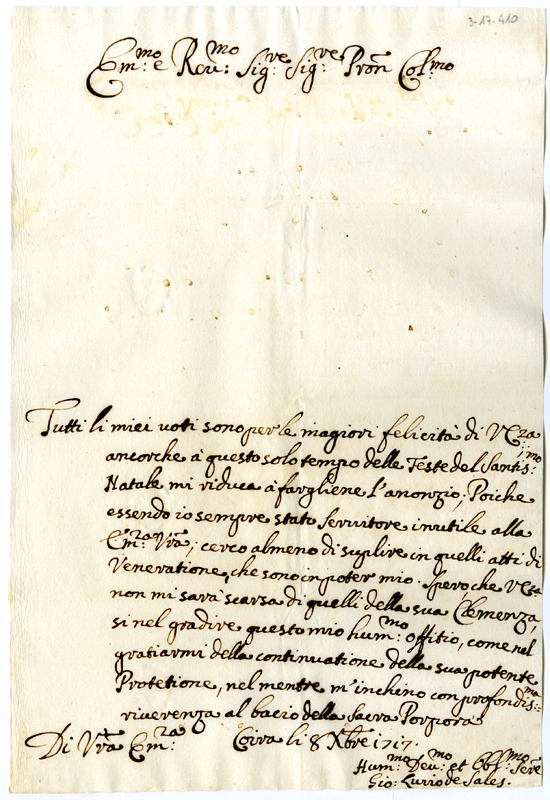 3-17-410
Em:mo e Reu:mo Sig:re Sig:re Pron Col:mo
Tutti li miei uoti sono per le magiori felicità di V Eza
ancorche à questo solo tempo delle Feste del Santis:mo
Natale mi riduca à fargliene l'anonzio; Poiche
essendo io sempre stato seruitore inutile alla
Em:za Vrã, cerco almeno di suplire in quelli atti di
Veneratione, che sono in poter mio. Spero che V Eza
non mi sarà scarsa di quelli della sua Clemenza,
si nel gradire questo mio hum:mo offitio, come nel
gratiarmi della continuatione della sua potente
Protetione, nel mentre m'inchino con profondis:ma
riuerenza al bacio della Sacra Porpora
Di Vrã Em:za Coira li 8 Xbre 1717.
Hum:mo Deu:mo et Obl:mo Sere
Gio: de Sales.